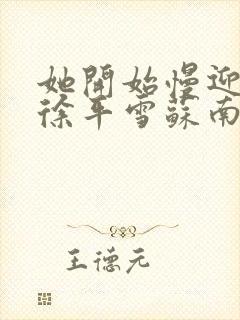 她開始慢迎
徐平雪蘇南
王德元